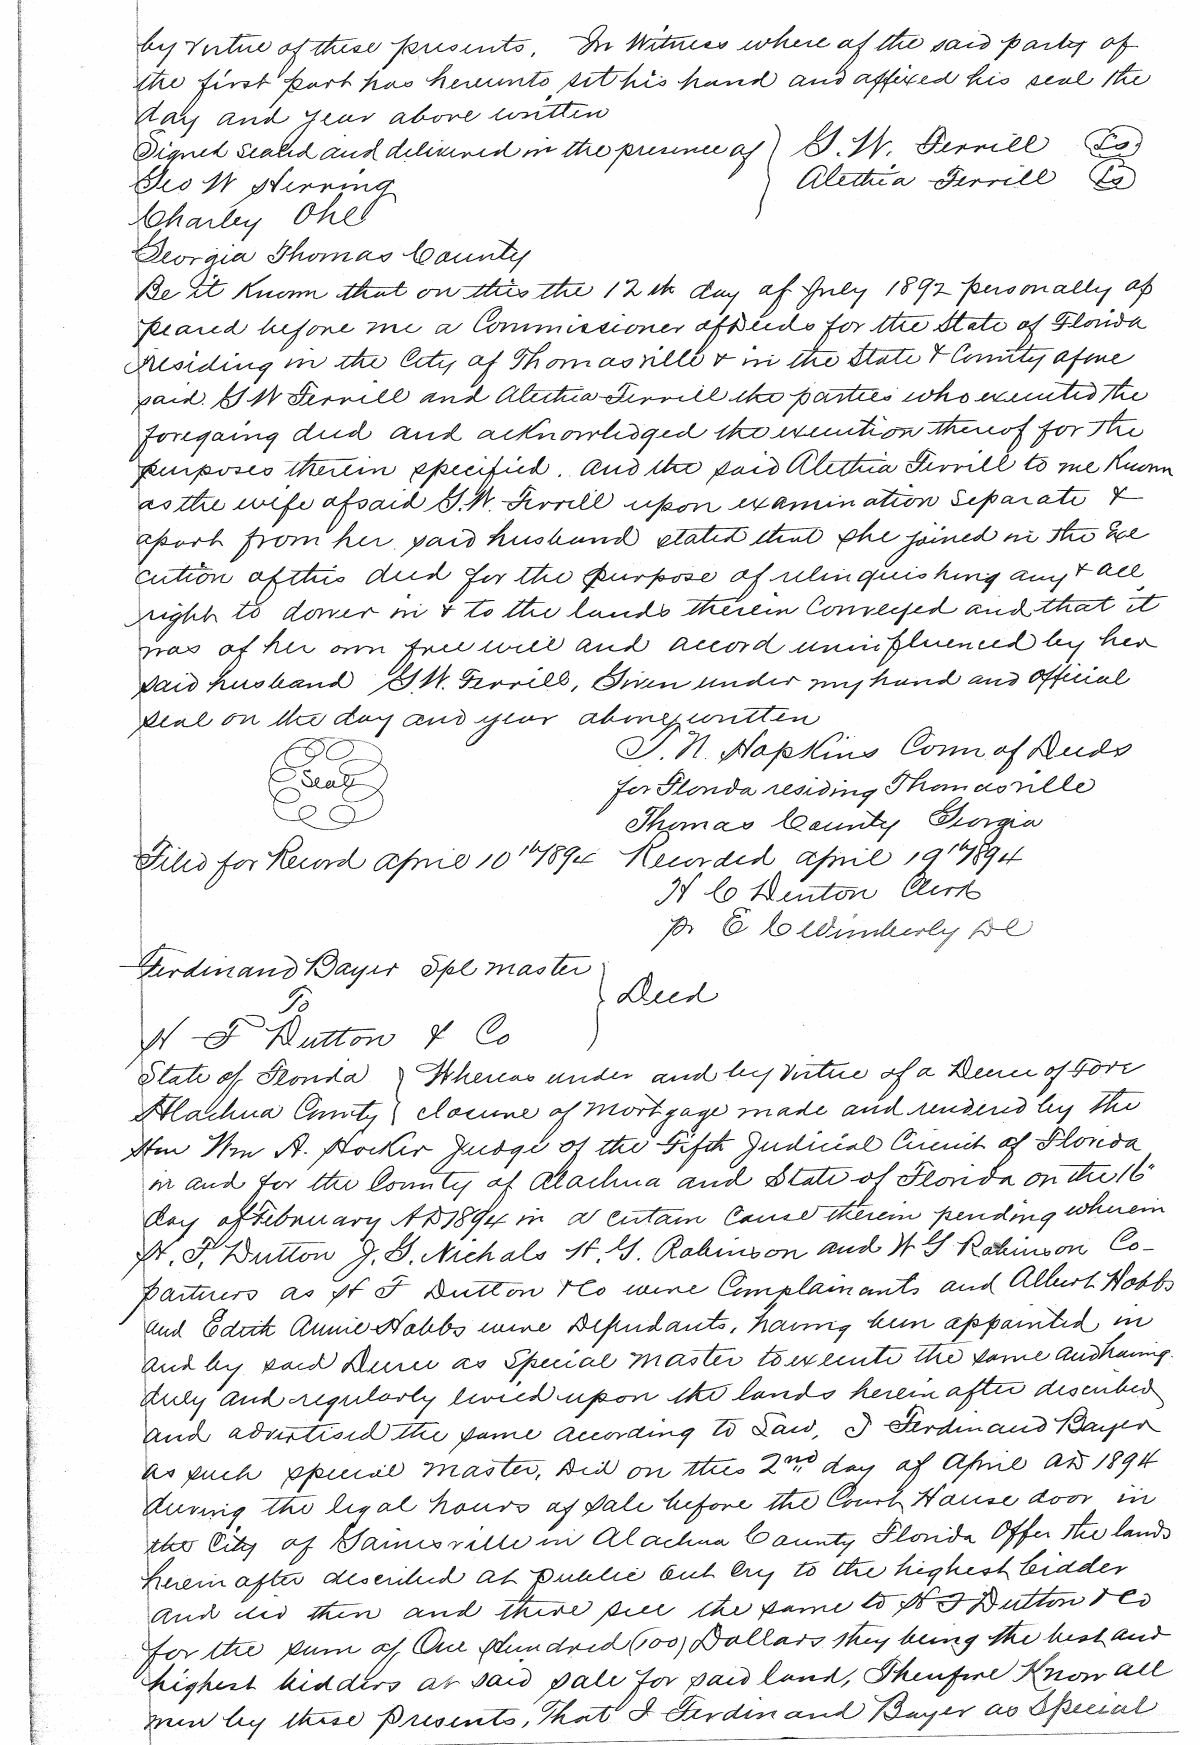 by virtue of these presents. In Witness where of the said party of
the first part has hereunto set his hand and affixed his seal the
day and year above written
Signed Sealed and delivered in the presence of } G. W. Ferrill (Ls)
Geo W Herring Alethia Ferrill (Ls)
Charley Ohl
Georgia Thomas County
Be it Known that on this the 12th day of July 1892 personally ap
peared before me a Commissioner of Deeds for the State of Florida
residing in the City of Thomasville & in the State & County afore
said. G W Ferrill and Alethia Ferrill the parties who executed the
foregoing deed and acknowledged the execution thereof for the
purposes therein specified. and the said Alethia Ferrill to me Known
as the wife of said G. W. Ferrill upon examination Separate &
apart from her said husband stated that she joined in the Exe
cution of this deed for the purpose of relinquishing any & all
right to dower in & to the lands therein Conveyed and that it
was of her own free will and accord uninfluenced by her
said husband G. W. Ferrill, Given under my hand and official
seal on the day and year above written
T. N. Hopkins Com of Deeds
Seal for Florida residing Thomasville
Thomas County Georgia
Filed for Record April 10th 1894 Recorded April 19th 1894
H C Denton Clerk
pr E C Wimberly DC
Ferdinand Bayer Spl master
To } Deed
H F Dutton & Co
State of Florida } Whereas under and by Virtue of a Decree of Fore
Alachua County } closure of Mortgage made and rendered by the
Hon Wm A. Hocker Judge of the Fifth Judicial Circuit of Florida
in and for the County of Alachua and State of Florida on the 16"
day of February AD 1894 in a certain Cause therein pending wherein
H. F. Dutton J. G. Nichols H. G. Robinson and W G Robinson Co-
partners as H F Dutton & Co were Complainants and Albert Hobbs
and Edith Annie Hobbs were Defendants, having been appointed in
and by said Decree as Special Master to execute the same and having
duly and regularly levied upon the lands herein after described
and advertised the same according to Law, I Ferdinand Bayer
as such special Master, did on this 2nd day of April AD 1894
during the legal hours of sale before the Court House door in
the City of Gainesville in Alachua County Florida Offer the lands
herein after described at public out cry to the highest bidder
and did then and there sell the same to H F Dutton & Co
for the sum of One Hundred (100) Dollars they being the best and
highest bidders at said sale for said land, Therefore Know all
men by these presents, That I Ferdinand Bayer as Special